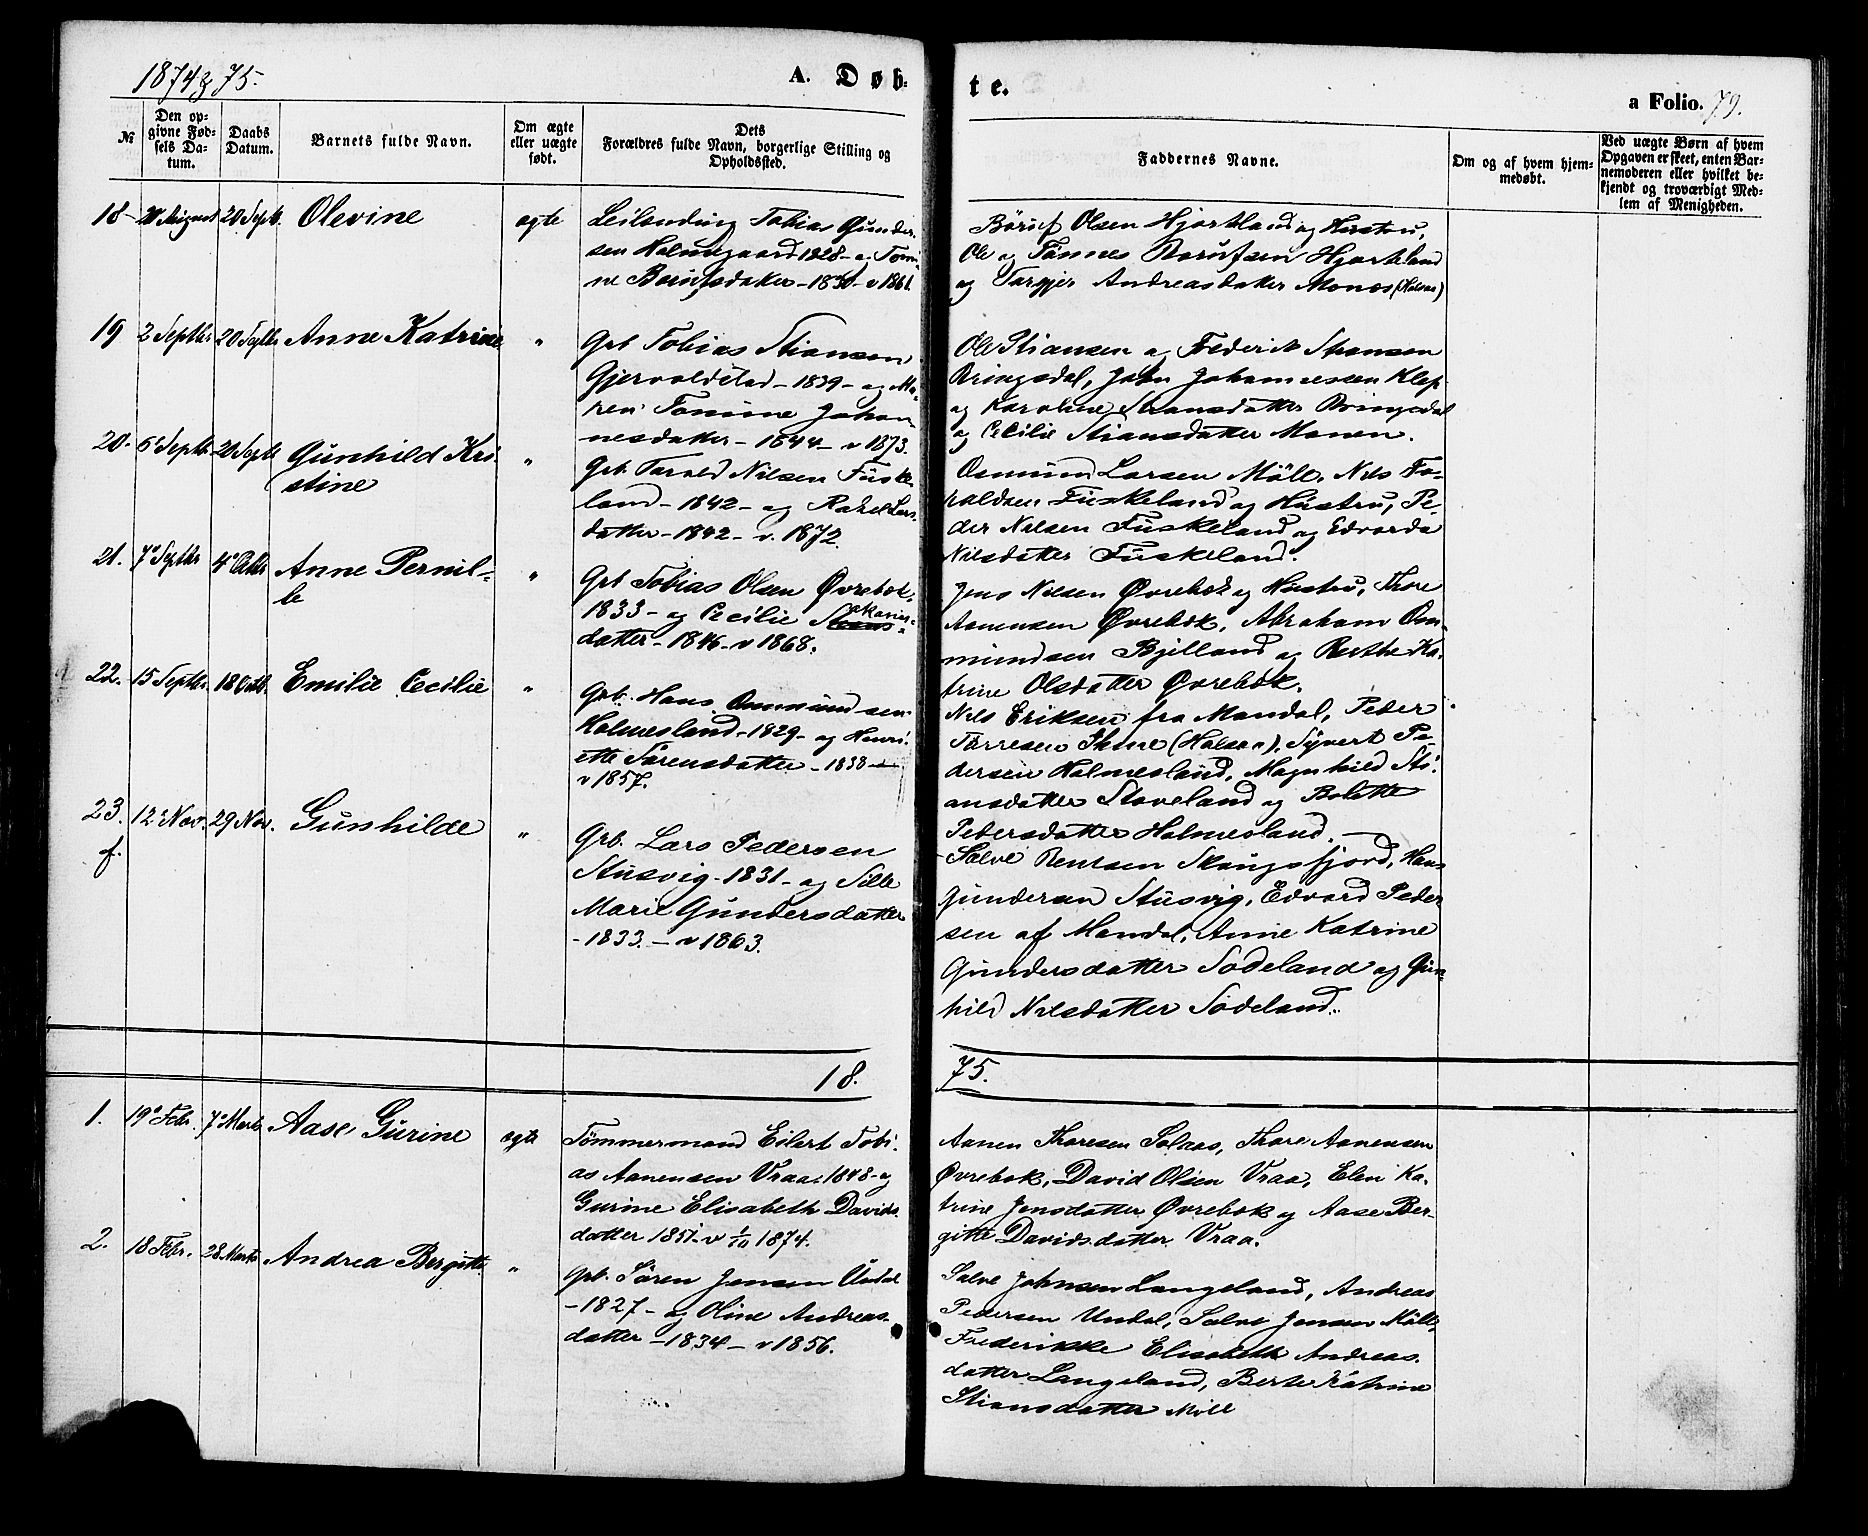 1874 & 75.
A. Døb-
te.
a Folio. 79.
№
Den op-
givne Fød-
sels Da-
tum.
Daabs
Datum.
Barnets fulde Navn.
Om ægte
eller uægte
født.
Dets
Forældres fulde Navn, borgerlige Stilling og
Opholdssted.
Faddernes Navne.
Om og af hvem hjem-
medøbt.
Ved uægte Børn af hvem
Opgaven er skeet, enten Bar-
nemoderen eller hvilket be-
kjendt og troværdigt Med-
lem af Menigheden.
18 August 20 Septb. Olevine ægte
Leilending Tobias Gunder
sen Holmegaard 1828 - og Tomi-
ne Berufsdatter - 1830 - v 1861.
Børuf Olsen Hjorteland og Hustru,
Ole og Tønnes Børufsen Hjorteland
og Targjer Andreasdatter Monos (Halsaa)
19 2 Septbr 20 Septbr Anne Katrine "
Grb Tobias Stiansen
Gjervoldstad - 1839 - og Ma-
ren Tomine Johan-
nesdatter - 1844 - v 1873.
Ole Stiansen og Frederik Stiansen
Bringsdal, John Johannessen Klep
og Karoline Stiansdatter Bringsdal
og Cecilie Stiansdatter Monen.
20. 6 Septb. 20 Septb Gunhild Kri-
stine "
Grb. Tarald Nilsen Fuske
land - 1842 - og Rakel Lars-
datter - 1842 - v. 1872.
Osmund Larsen Möll, Nils Ta-
raldsen Fuskeland og Hustru, Pe-
der Nilsen Fuskeland og Edvarda
Nilsdatter Fuskeland.
21. 7 Septbr 4 Octbr Anne Pernil-
le "
Grb Tobias Olsen Øvrebøk
1833 - og Cecilie
datter - 1846 - v 1868.
Jens Nilsen Øvrebøk og Hustru, Thore
Aanensen Øvrebøk, Abraham Os-
mundsen Bjelland og Berthe Ka-
trine Olsdatter Øvrebøk.
22. 15 Septbr. 18 Octb. Emilie Cecilie "
Grb. Hans Osmundsen
Holmesland - 1829 - og Henri-
ette Sørensdatter - 1838 -
v 1857.
Nils Eriksen fra Mandal, Peder
Tørresen Ihme (Halsaa), Syvert Pe-
dersen Holmesland, Magnhild Sti-
ansdatter Stoveland og Bolette
Pedersdatter Holmesland.
23. 12 Nov. 29 Nov. Gunhilde "
f.
Grb. Lars Pedersen
Stusvig - 1831 - og Sille
Marie Gundersdatter
- 1833 - v 1863.
Salve Bentsen Skougsfjord, Hans
Gundersen Stusvig, Edvard Peder
sen af Mandal, Anne Katrine
Gundersdatter Sodeland og Gun-
hild Nilsdatter Sodeland.
18.
75.
1. 19 Febr. 7 Marts Aase Gurine ægte
Tømmermand Eilert Tobi-
as Aanensen Vraa 1848 - og
Gurine Elisabeth Davids
datter 1851 - v 1/10 1874.
Aanen Thoresen Solaas, Thore Aanensen
Øvrebøk, David Olsen Vraa, Elen Ka-
trine Jensdatter Øvrebøk og Aase Ber-
gitte Davidsdatter Vraa.
2. 18 Febr. 28 Marts Andrea Bergitte "
Grb. Søren Jensen Undal
- 1827 - og Oline Andreas-
datter - 1834 - v 1856.
Salve Johnsen Langeland, Andreas
Pedersen Undal, Salve Jensen Möll,
Frederikke Elisabeth Andreas
datter Langeland, Berte Katrine
Stiansdatter Möll